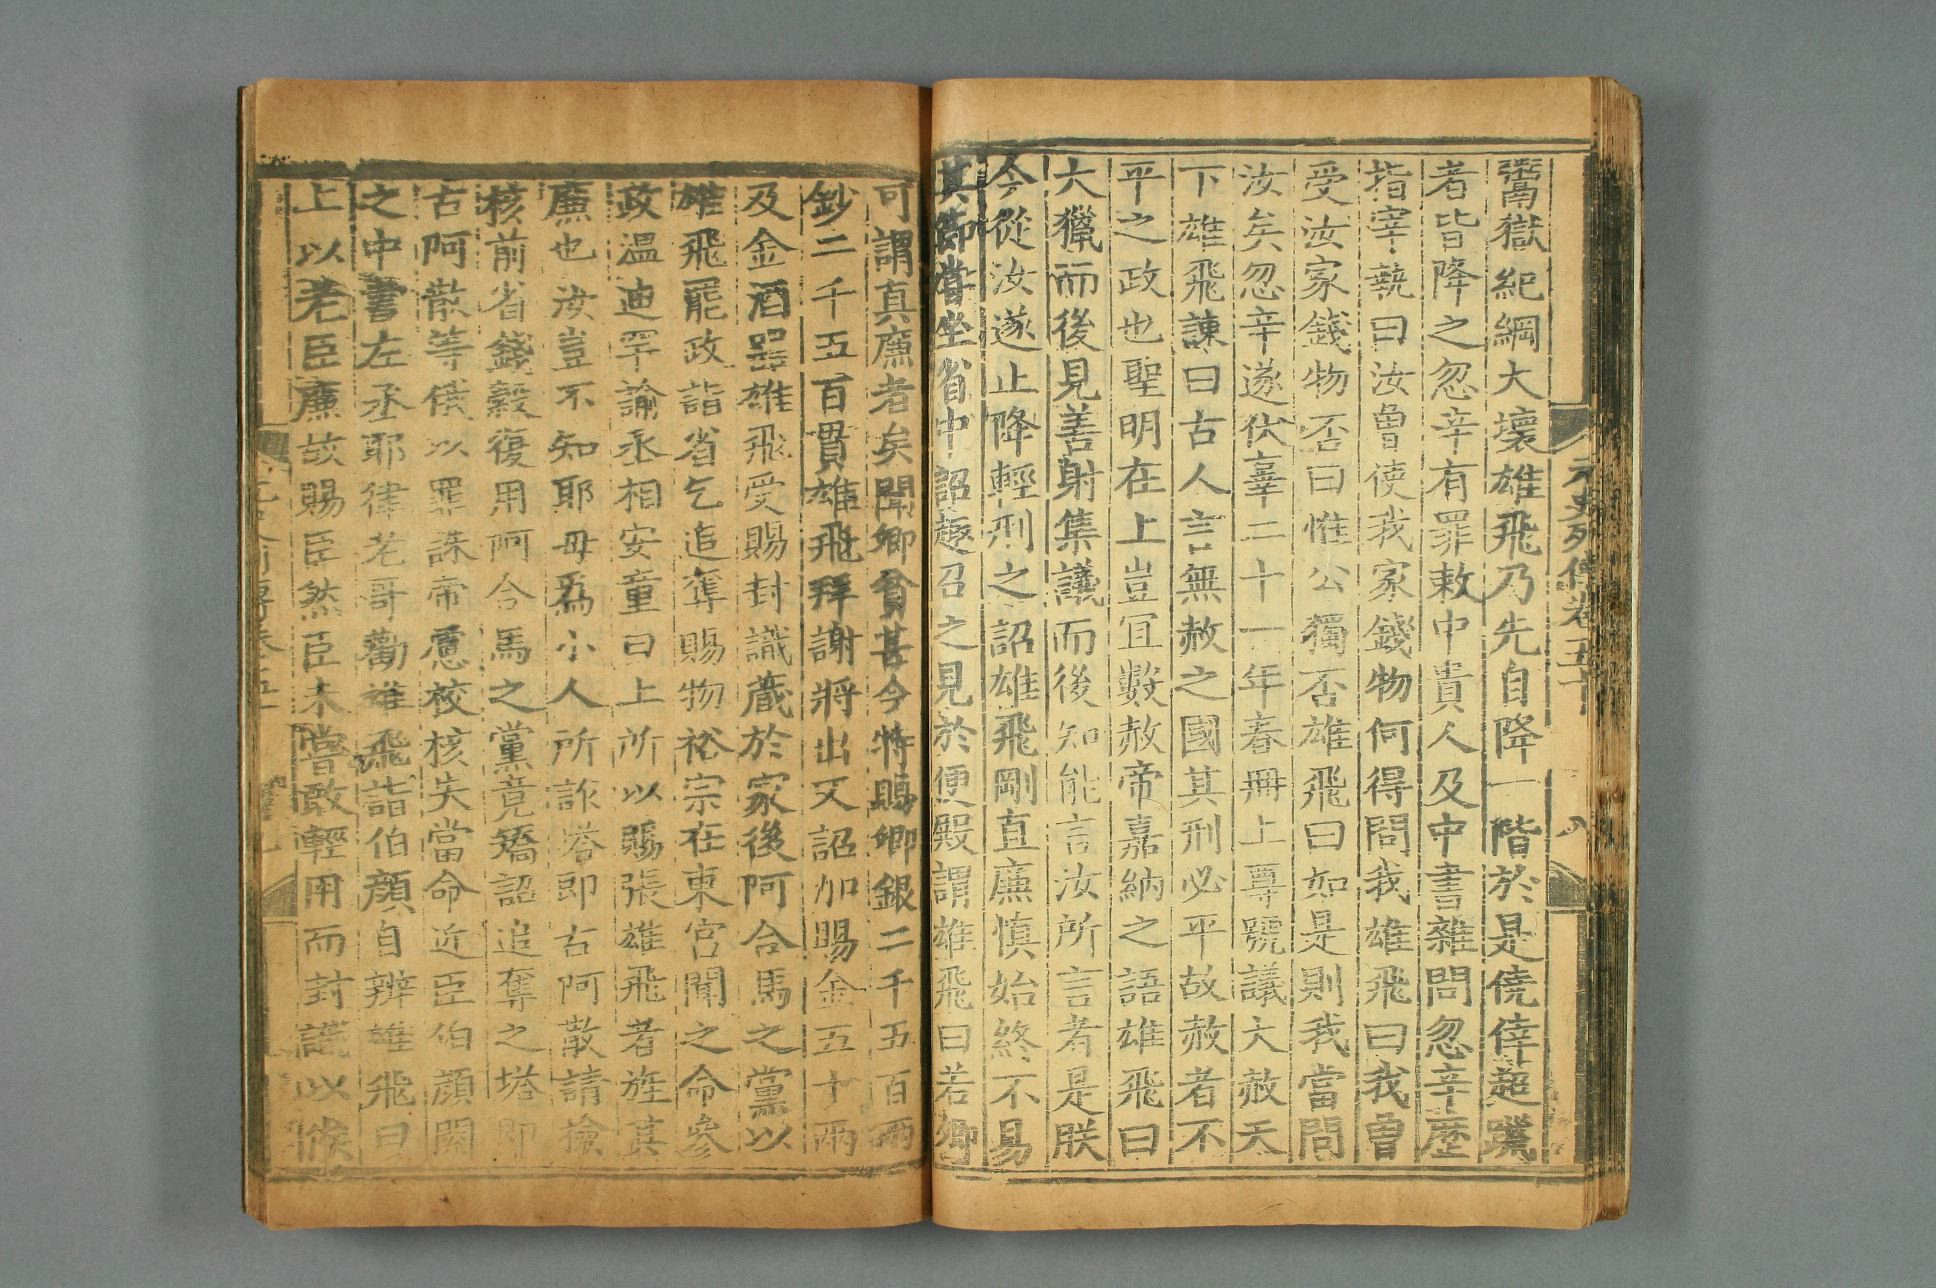 元史列傳卷五十
八
鬻獄紀綱大壞雄飛乃先自降一階於是僥倖超躐
者皆降之忽辛有罪敕中貴人及中書雜問忽辛歷
指宰執曰汝曾使我家錢物何得問我雄飛曰我曾
受汝家錢物否曰惟公獨否雄飛曰如是則我當問
汝矣忽辛遂伏辜二十一年春冊上尊號議大赦天
下雄飛諫曰古人言無赦之國其刑必平故赦者不
平之政也聖明在上豈宜數赦帝嘉納之語雄飛曰
大獵而後見善射集議而後知能言汝所言者是朕
今從汝遂止降輕刑之詔雄飛剛直廉慎始終不易
其節嘗坐省中詔趣召之見於便殿謂雄飛曰若卿
可謂真廉者矣聞卿貧甚今特賜卿銀二千五百兩
鈔二千五百貫雄飛拜謝將出又詔加賜金五十兩
及金酒器雄飛受賜封識藏於家後阿合馬之黨以
雄飛罷政詣省乞追奪賜物裕宗在東宮聞之命參
政温迪罕諭丞相安童曰上所以賜張雄飛者旌其
廉也汝豈不知耶毋爲小人所詐塔即古阿散請檢
核前省錢穀復用阿合馬之黨竟矯詔追奪之塔即
古阿散等俄以罪誅帝慮校核失當命近臣伯顏閱
之中書左丞耶律老哥勸雄飛詣伯顏自辨雄飛曰
上以老臣廉故賜臣然臣未嘗敢輕用而封識以俟